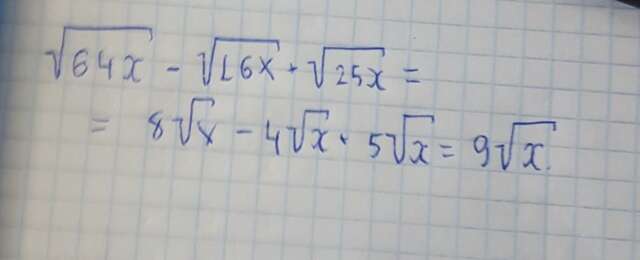 √64x - √16x · √25x =
= 8√x - 4√x · 5√x = 9√x